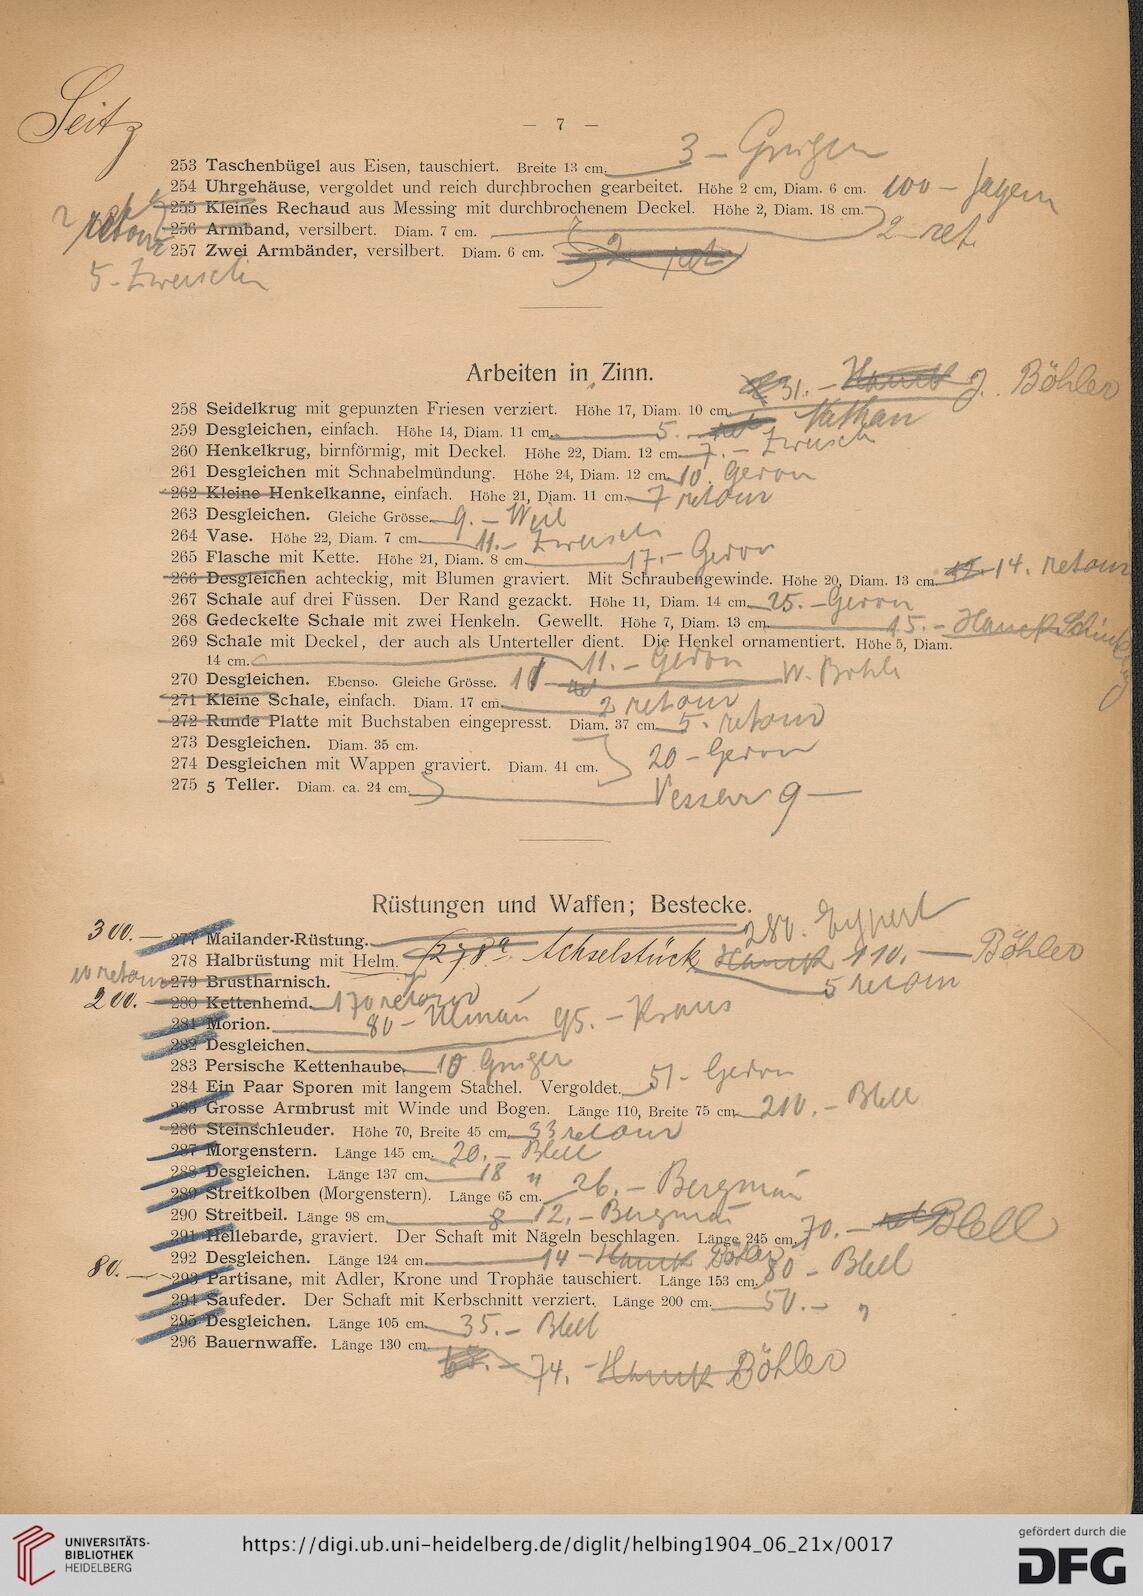 Seitz
— 7 —
253 Taschenbügel aus Eisen, tauschiert. Breite 13 cm. 3 –
254 Uhrgehäuse, vergoldet und reich durchbrochen gearbeitet. Höhe 2 cm, Diam. 6 cm. 100 –
255 Kleines Rechaud aus Messing mit durchbrochenem Deckel. Höhe 2, Diam. 18 cm.
retour 256 Armband, versilbert. Diam. 7 cm. 2 ret.
257 Zwei Armbänder, versilbert. Diam. 6 cm. 2 ret
5 –
Arbeiten in Zinn.
258 Seidelkrug mit gepunzten Friesen verziert. Höhe 17, Diam. 10 cm. 31. – J. Böhler
259 Desgleichen, einfach. Höhe 14, Diam. 11 cm. 5. – ret Nathan
260 Henkelkrug, birnförmig, mit Deckel. Höhe 22, Diam. 12 cm. 7. –
261 Desgleichen mit Schnabelmündung. Höhe 24, Diam. 12 cm. 10. Gedon
262 Kleine Henkelkanne, einfach. Höhe 21, Diam. 11 cm. 7 retour
263 Desgleichen. Gleiche Grösse. 9. – Weil
264 Vase. Höhe 22, Diam. 7 cm. 11. –
265 Flasche mit Kette. Höhe 21, Diam. 8 cm. 17. – Gedon
266 Desgleichen achteckig, mit Blumen graviert. Mit Schraubengewinde. Höhe 20, Diam. 13 cm. 14. retour
267 Schale auf drei Füssen. Der Rand gezackt. Höhe 11, Diam. 14 cm. 25. – Gedon
268 Gedeckelte Schale mit zwei Henkeln. Gewellt. Höhe 7, Diam. 13 cm. 15. –
269 Schale mit Deckel, der auch als Unterteller dient. Die Henkel ornamentiert. Höhe 5, Diam.
14 cm. 11. – Gedon
270 Desgleichen. Ebenso. Gleiche Grösse.
271 Kleine Schale, einfach. Diam. 17 cm. 2 retour
272 Runde Platte mit Buchstaben eingepresst. Diam. 37 cm. 5. retour
273 Desgleichen. Diam. 35 cm.
274 Desgleichen mit Wappen graviert. Diam. 41 cm. 20 – Gedon
275 5 Teller. Diam. ca. 24 cm. 9 —
Rüstungen und Waffen; Bestecke.
300. — 277 Mailander-Rüstung. 280.
278 Halbrüstung mit Helm. (278a Achselstück 110. — Böhler
10 retour 279 Brustharnisch. 5 retour
200. — 280 Kettenhemd. 170 retour
281 Morion. 80 –
282 Desgleichen. 95. – Kraus
283 Persische Kettenhaube. 10
284 Ein Paar Sporen mit langem Stachel. Vergoldet. 51 – Gedon
285 Grosse Armbrust mit Winde und Bogen. Länge 110, Breite 75 cm. 210. – Blell
286 Steinschleuder. Höhe 70, Breite 45 cm. 33 retour
287 Morgenstern. Länge 145 cm. 20. – Blell
288 Desgleichen. Länge 137 cm. 18 "
289 Streitkolben (Morgenstern). Länge 65 cm. 26. – Bergman
290 Streitbeil. Länge 98 cm. 12. – Bergman
291 Hellebarde, graviert. Der Schaft mit Nägeln beschlagen. Länge 245 cm. 70. – Blell
292 Desgleichen. Länge 124 cm. 14 –
80. — 293 Partisane, mit Adler, Krone und Trophäe tauschiert. Länge 153 cm. 80 – Blell
294 Saufeder. Der Schaft mit Kerbschnitt verziert. Länge 200 cm. 50. – "
295 Desgleichen. Länge 105 cm. 35. – Blell
296 Bauernwaffe. Länge 130 cm.
74. – Böhler
UNIVERSITÄTS-
BIBLIOTHEK
HEIDELBERG
https://digi.ub.uni-heidelberg.de/diglit/helbing1904_06_21x/0017
gefördert durch die
DFG